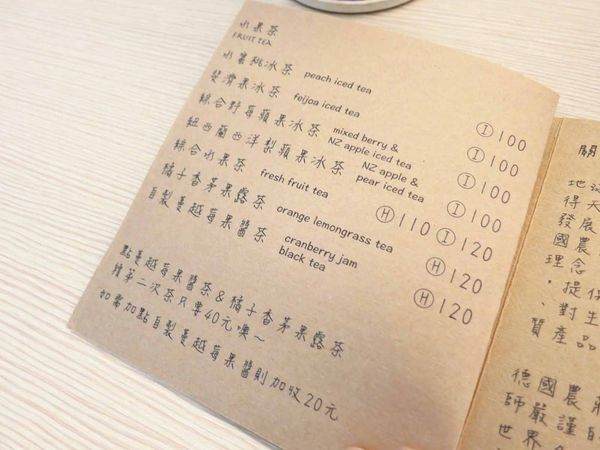 水果茶
FRUIT TEA
水蜜桃冰茶 peach iced tea Ⓘ100
斐濟果冰茶 feijoa iced tea Ⓘ100
綜合野莓蘋果冰茶 mixed berry & NZ apple iced tea Ⓘ100
紐西蘭西洋梨蘋果冰茶 NZ apple & pear iced tea Ⓘ100
綜合水果茶 fresh fruit tea Ⓗ110 Ⓘ120
橘子香茅果露茶 orange lemongrass tea Ⓗ120
自製蔓越莓果醬茶 cranberry jam black tea Ⓗ120
點蔓越莓果醬茶&橘子香茅果露茶
續第二次茶只要40元噢~
如需加點自製蔓越莓果醬則加收20元
開
地
得天
發展
國農
理念
、提保
、對生
質產品
德國農
師嚴謹自
世界各